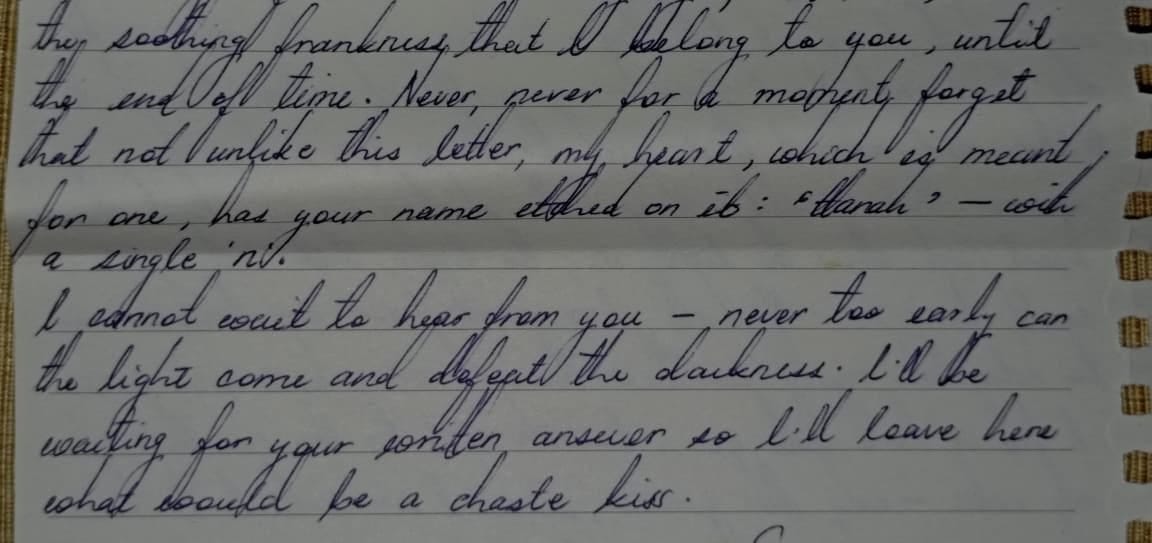 the soothing frankness, that I belong to you, until
the end of time. Never, never for a moment, forget
that not unlike this letter, my heart, which is meant
for one, has your name etched on it: "Hanah" – with
a single 'n'.
I cannot wait to hear from you – never too early can
the light come and defeat the darkness. I'll be
waiting for your written answer so I'll leave here
what would be a chaste kiss.